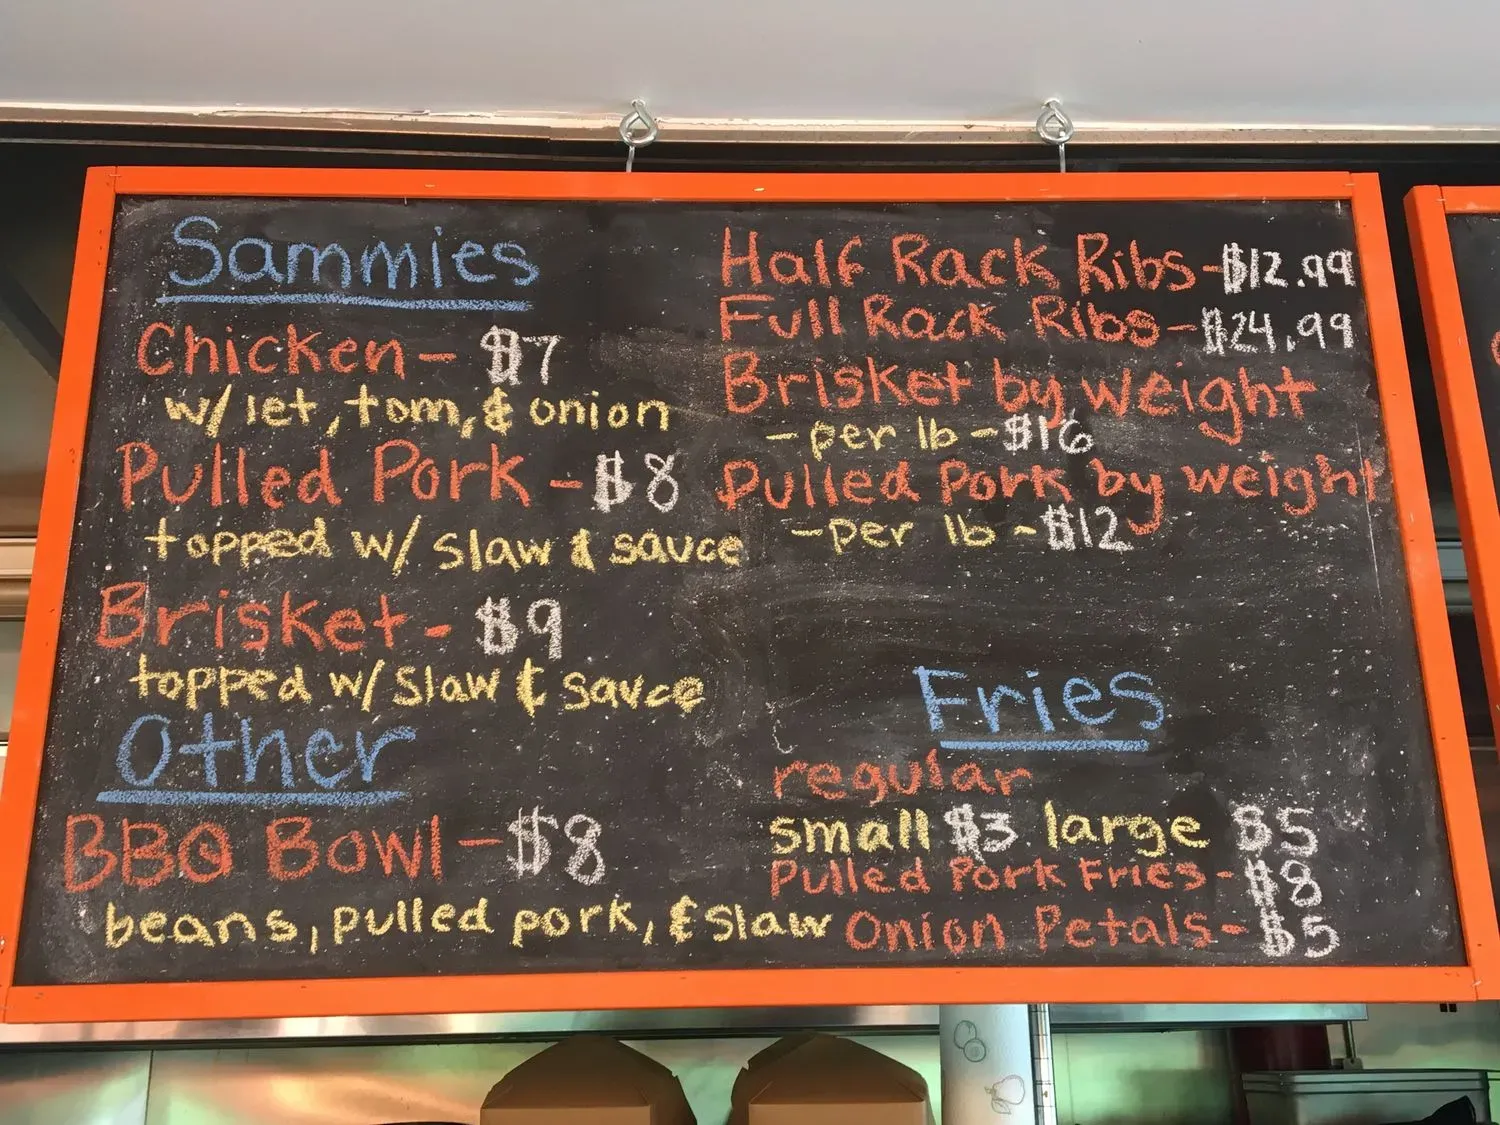 Sammies
Chicken - $7
w/ let, tom, & onion
Pulled Pork - $8
topped w/ slaw & sauce
Brisket - $9
topped w/ slaw & sauce
Other
BBQ Bowl - $8
beans, pulled pork, & slaw
Half Rack Ribs - $12.99
Full Rack Ribs - $24.99
Brisket by weight
- per lb - $16
Pulled Pork by weight
- per lb - $12
Fries
regular
small $3 large $5
Pulled Pork Fries - $8
Onion Petals - $5